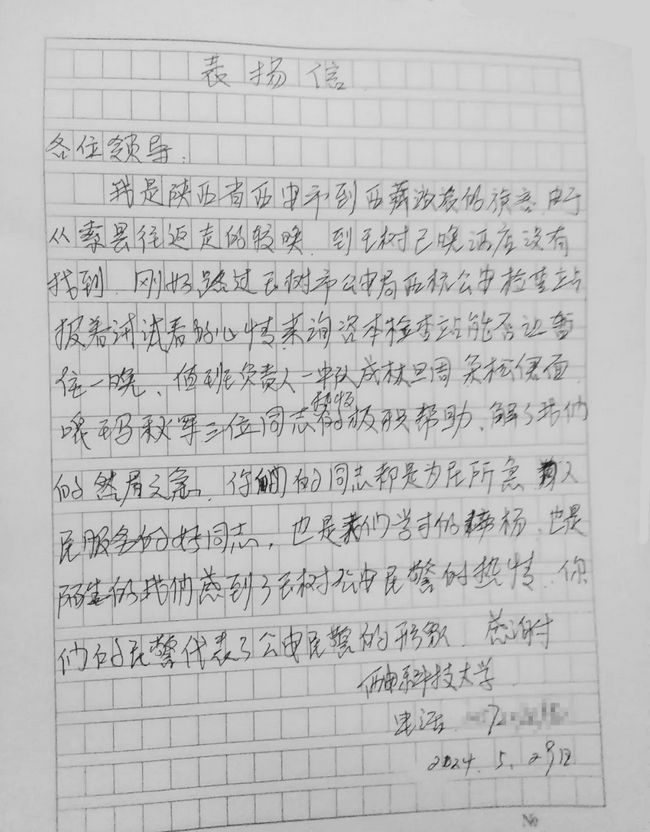 表扬信
各位领导:
我是陕西省西安市到西藏游客的旅客,由于
从索县往返走的较晚,到玉树已晚酒店没有
找到,刚好路过玉树市公安局西杭公安检查站
报着试试看的心情来询咨本检查站能否让暂
住一晚、值班负责人一中队成林旦周 求松便面
哦玛秋军三位同志积极
的极职帮助,解了我们
的然眉之急,你们的同志都是为民所急 为人
民服务的好同志,也是我们学习的榜扬,也是
陌生的我们感到了玉树公安民警的热情,你
们的民警代表了公安民警的形象,感谢
科技大学
电话:
2024.5.29日
No